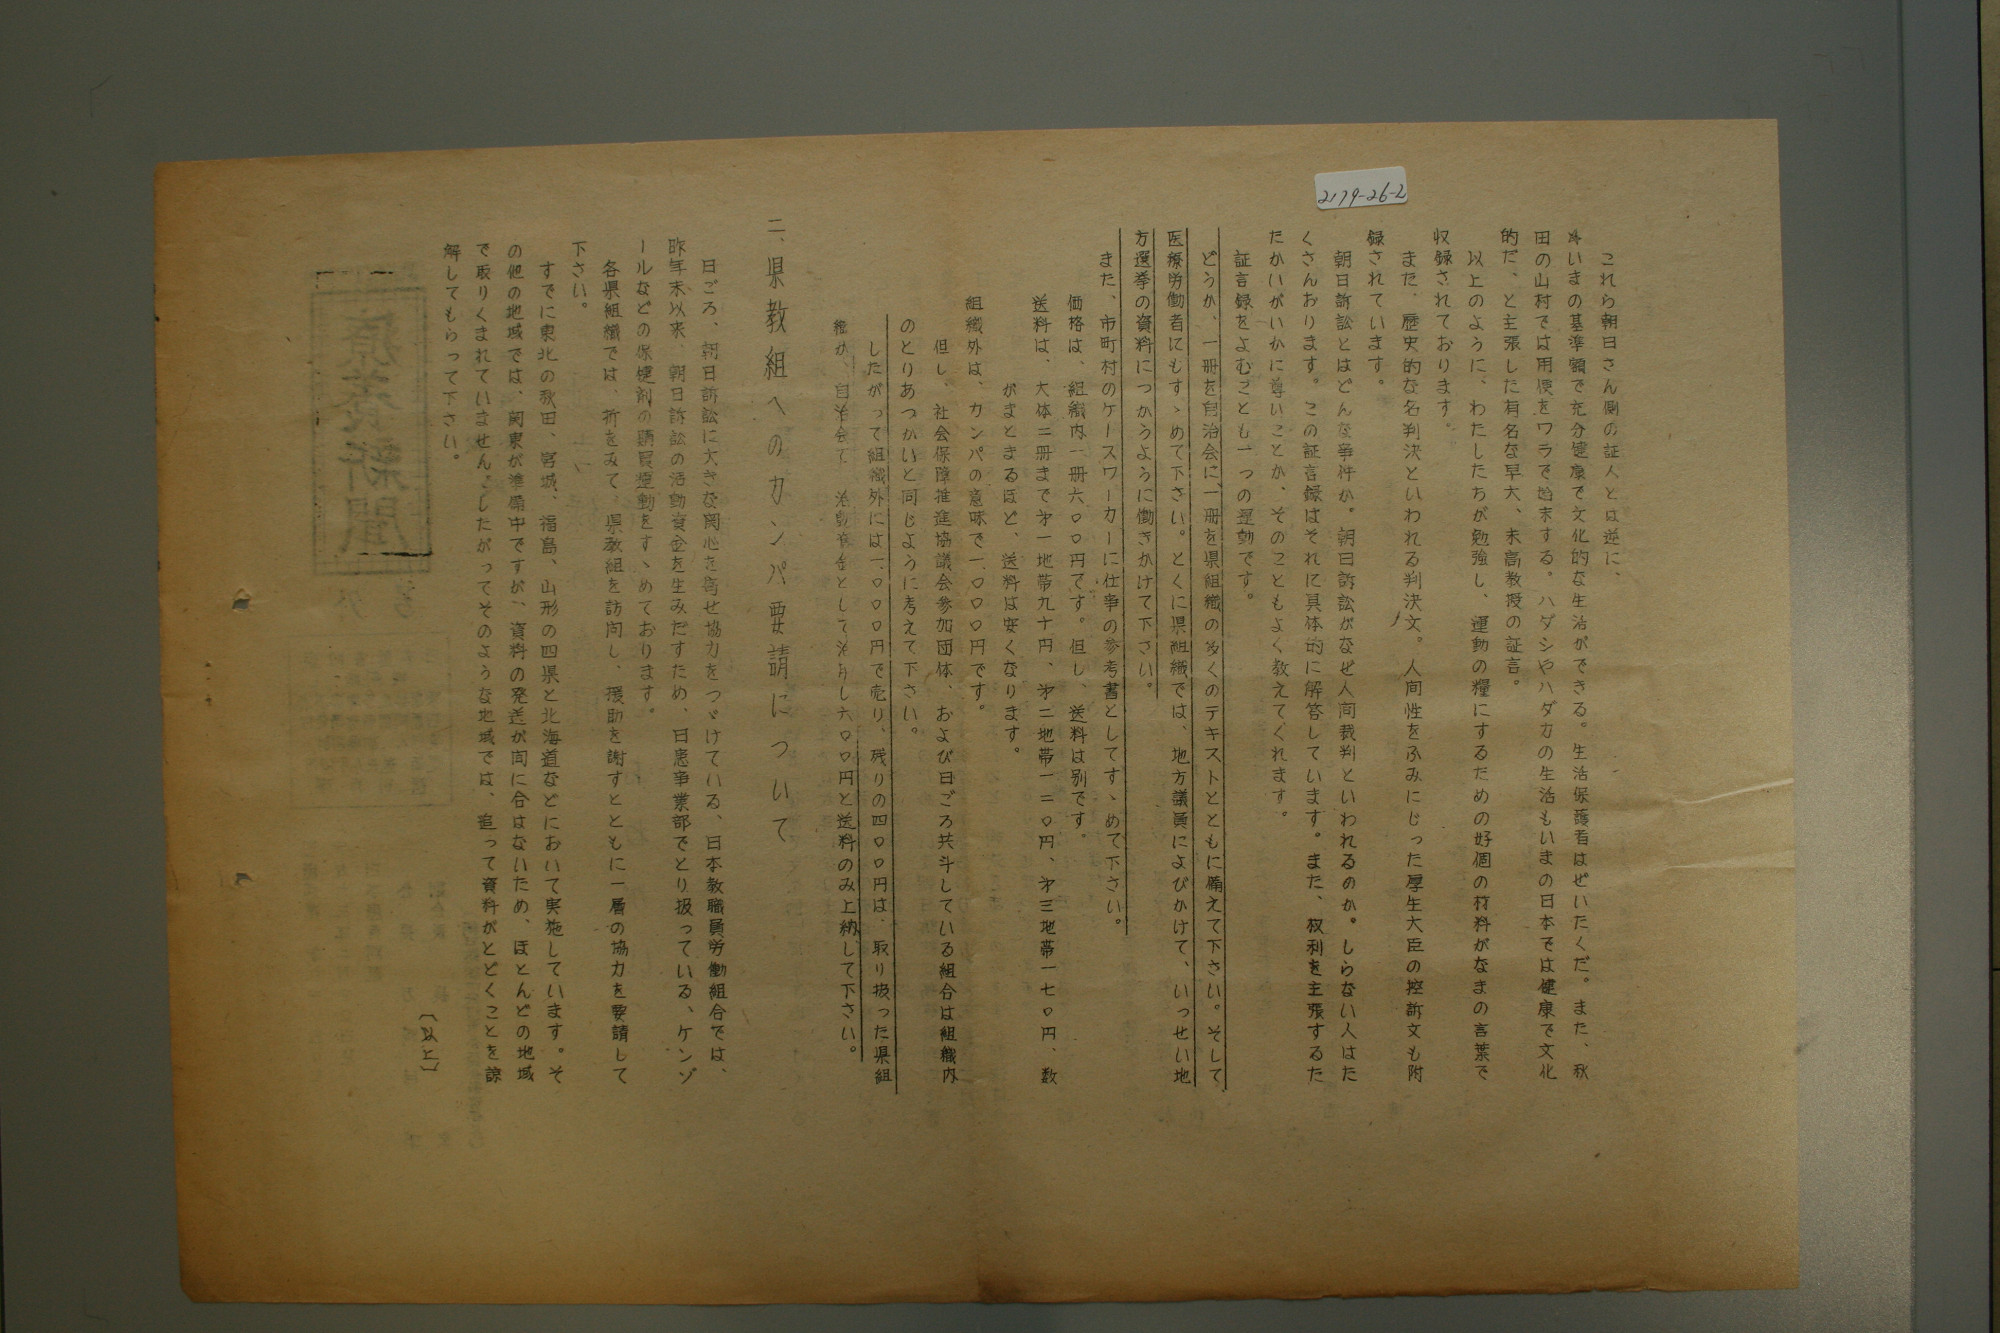 2179-26-2
これら朝日さん側の証人とは逆に、
いまの基準額で充分健康で文化的な生活ができる。生活保護者はぜいたくだ。また、秋
田の山村では用便をワラで始末する。ハダシやハダカの生活もいまの日本では健康で文化
的だ、と主張した有名な早大、末高教授の証言。
以上のように、わたしたちが勉強し、運動の糧にするための好個の材料がなまの言葉で
収録されております。
また、歴史的な名判決といわれる判決文。人间性をふみにじった厚生大臣の控訴文も附
録されています。
朝日訴訟とはどんな事件か。朝日訴訟がなぜ人间裁判といわれるのか。しらない人はた
くさんおります。この証言録はそれに具体的に解答しています。また、权利を主張するた
たかいがいかに尊いことか、そのこともよく教えてくれます。
証言録をよむことも一つの運動です。
どうか、一册を自治会に、一册を県組織の多くのテキストとともに備えて下さい。そして
医療労働者にもすゝめて下さい。とくに県組織では、地方議員によびかけて、いっせい地
方選挙の資料につかうように働きかけて下さい。
また、市町村のケースワーカーに仕事の参考書としてすゝめて下さい。
価格は、組織内一册六〇〇円です。但し、送料は別です。
送料は、大体二册まで才一地帯九十円、才二地帯一二〇円、才三地帯一七〇円、数
がまとまるほど、送料は安くなります。
組織外は、カンパの意味で一、〇〇〇円です。
但し、社会保障推進協議会参加団体、および日ごろ共斗している組合は組織内
のとりあつかいと同じように考えて下さい。
したがって組織外には一、〇〇〇円で売り、残りの四〇〇円は、取り扱った県組
織か、自治会で 活動資金として六〇〇円と送料のみ上納して下さい。
二、県教組へのカンパ要請について
日ごろ、朝日訴訟に大きな関心を寄せ協力をつゞけている、日本教職員労働組合では、
昨年末以来、朝日訴訟の活動資金を生みだすため、日患事業部でとり扱っている、ケンゾ
ールなどの保健剤の購買運動をすゝめております。
各県組織では、折をみて、県教組を訪问し、援助を謝すとともに一層の協力を要請して
下さい。
すでに東北の秋田、宮城、福島、山形の四県と北海道などにおいて実施しています。そ
の他の地域では、関東が準備中ですが、資料の発送が间に合はないため、ほとんどの地域
で取りくまれていません。したがってそのような地域では、追って資料がとどくことを諒
解してもらって下さい。
(以上)